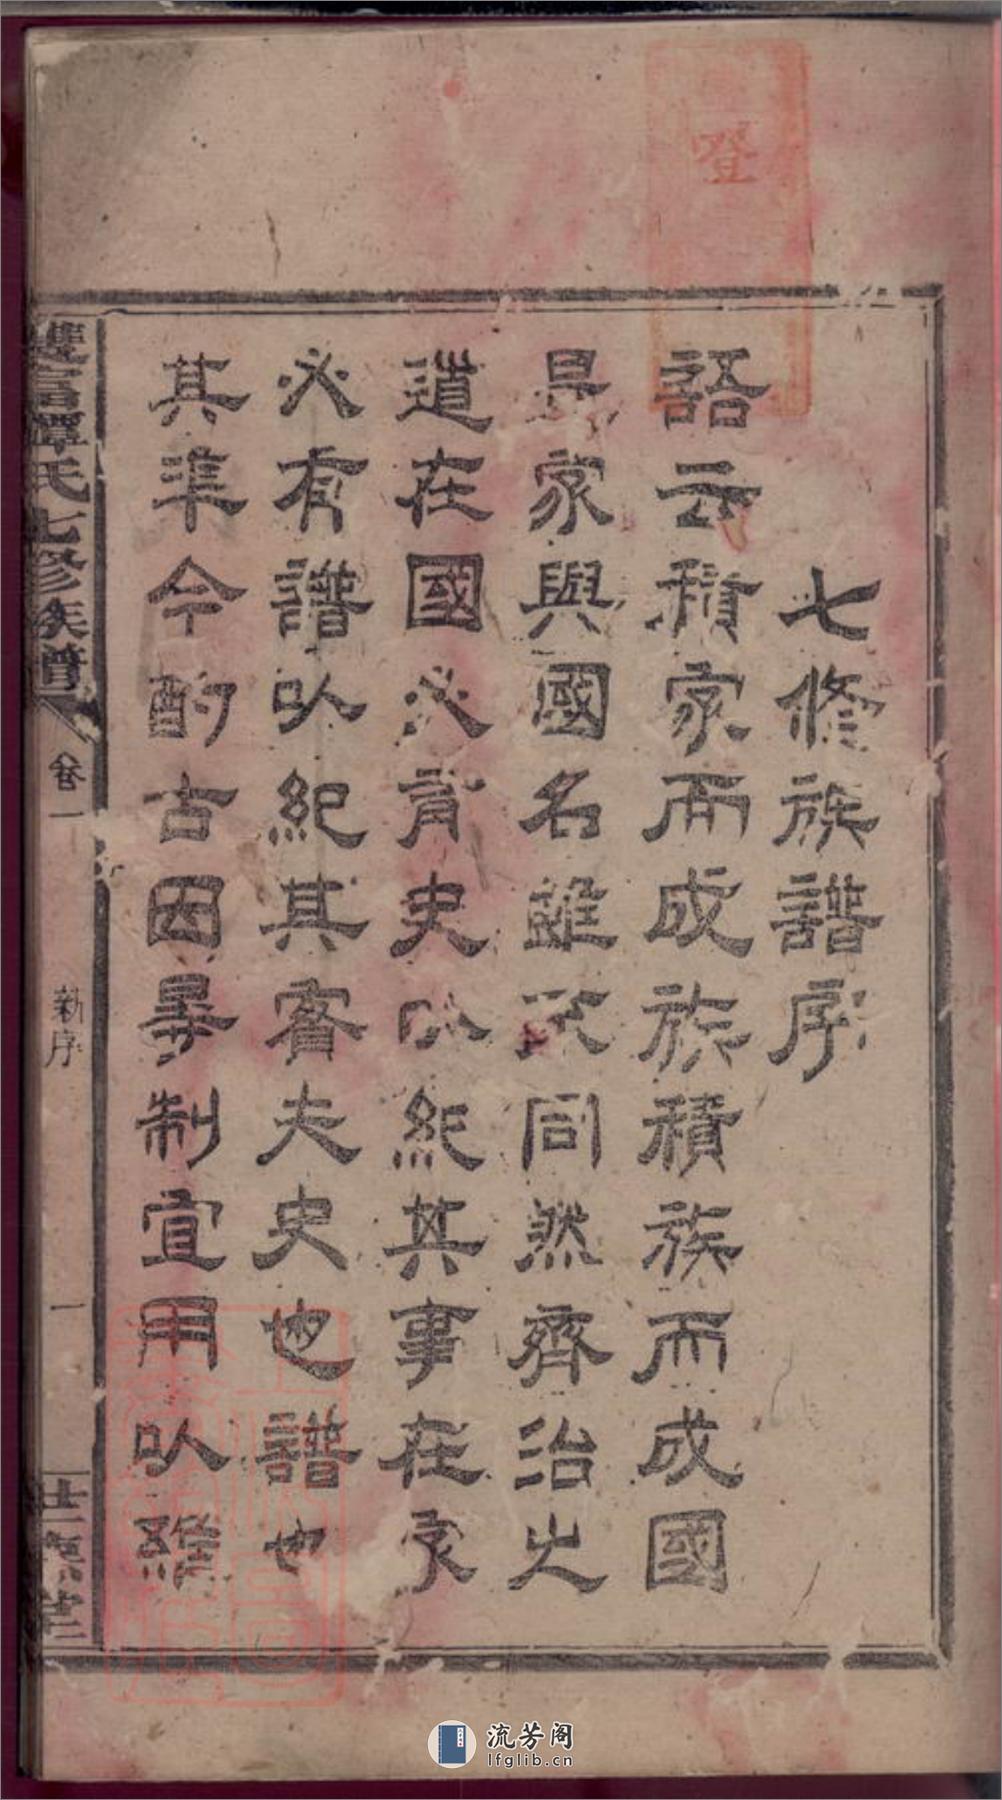 七修族譜序
語云積家而成族積族而成國
是家與國名雖不同然齊治之
道在國必有史以紀其事在家
必有譜以紀其實夫史也譜也
其準今酌古因畢制宜用以維
雙官譚氏七修族譜
卷一
新序
一
登
流芳阁
lfglib.cn